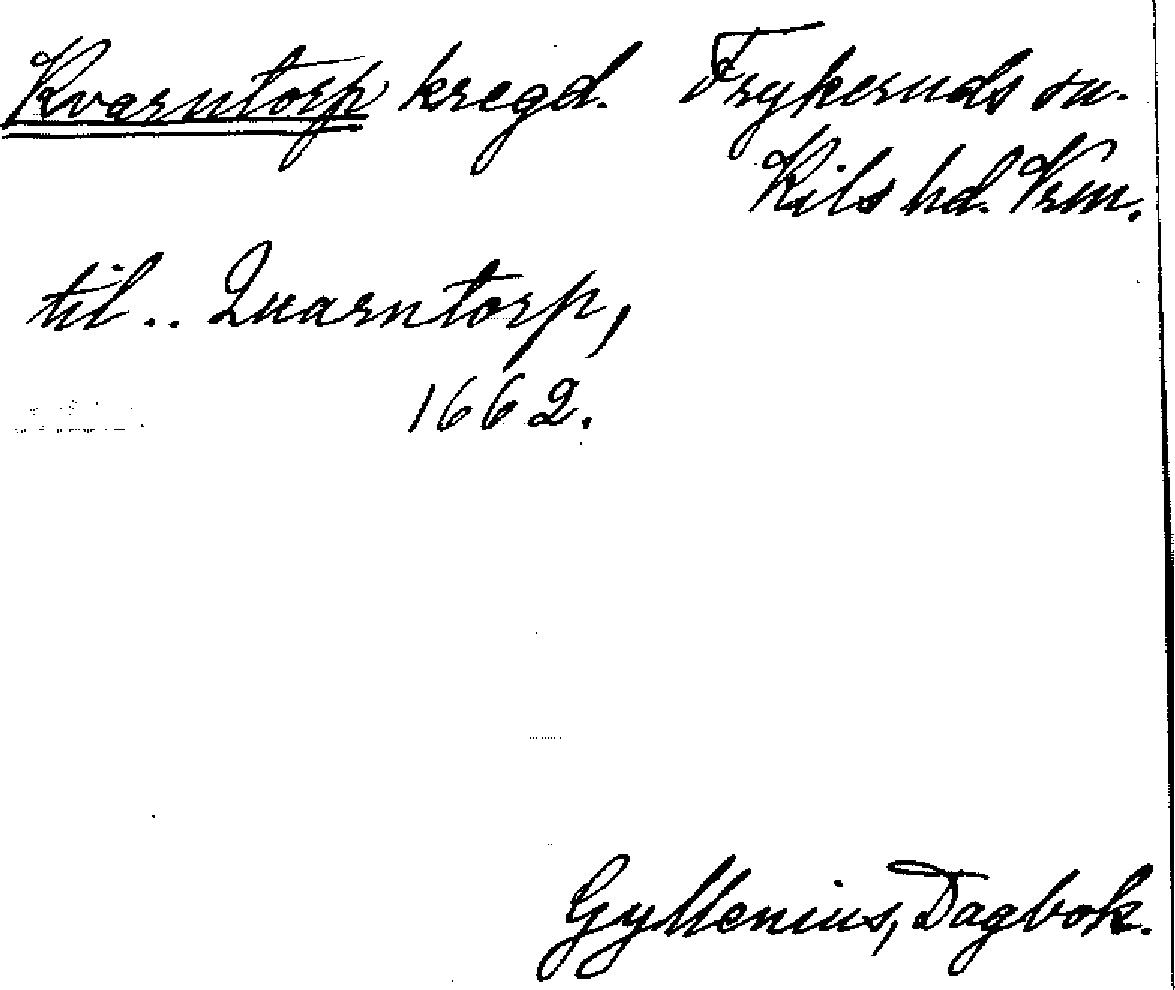 Kvarntorp kregd. Frykeruds sn.
Kils hd. Vrm.
til .. Quarntorp,
1662.
Gyllenius, Dagbok.